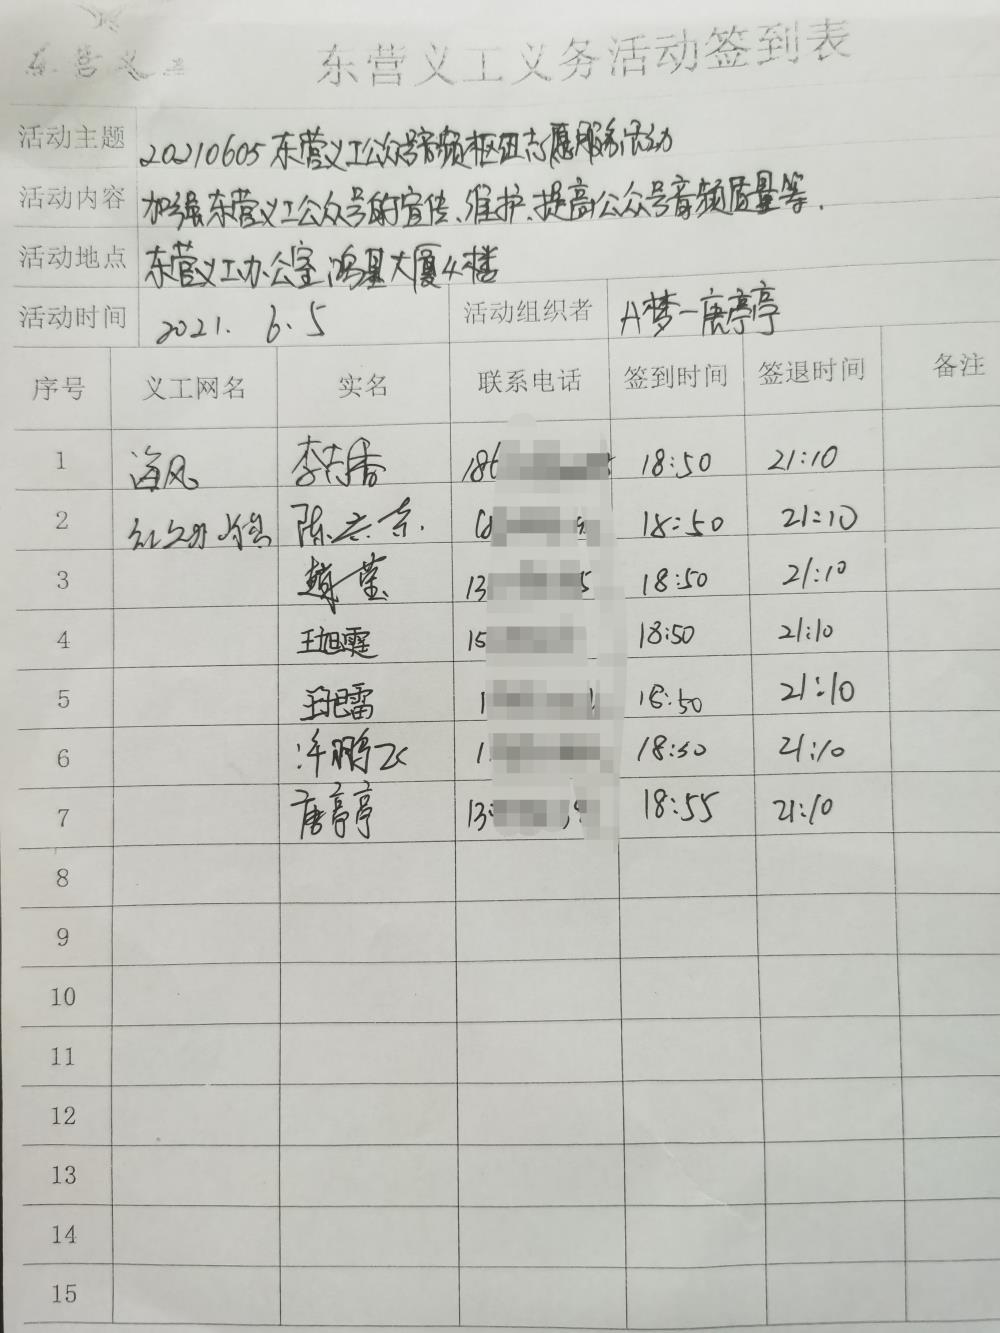 东营义工
东营义工义务活动签到表
活动主题 20210605东营义工公众号音频枢纽志愿服务活动
活动内容 加强东营义工公众号的宣传、维护、提高公众号音频质量等.
活动地点 东营义工办公室 鸿基大厦4楼
活动时间 2021.6.5 活动组织者 A梦一唐亭亭
序号 义工网名 实名 联系电话 签到时间 签退时间 备注
1 海风 李志香 186 18:50 21:10
2 陈云京. 18:50 21:10
3 赵莹 13 5 18:50 21:10
4 王旭霆 15 18:50 21:10
5 雷 1 18:50 21:10
6 许鹏飞 1 18:50 21:10
7 唐亭亭 13 18:55 21:10
8
9
10
11
12
13
14
15